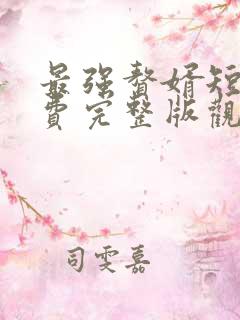 最强贅婿短
費完整版觀
司雯嘉